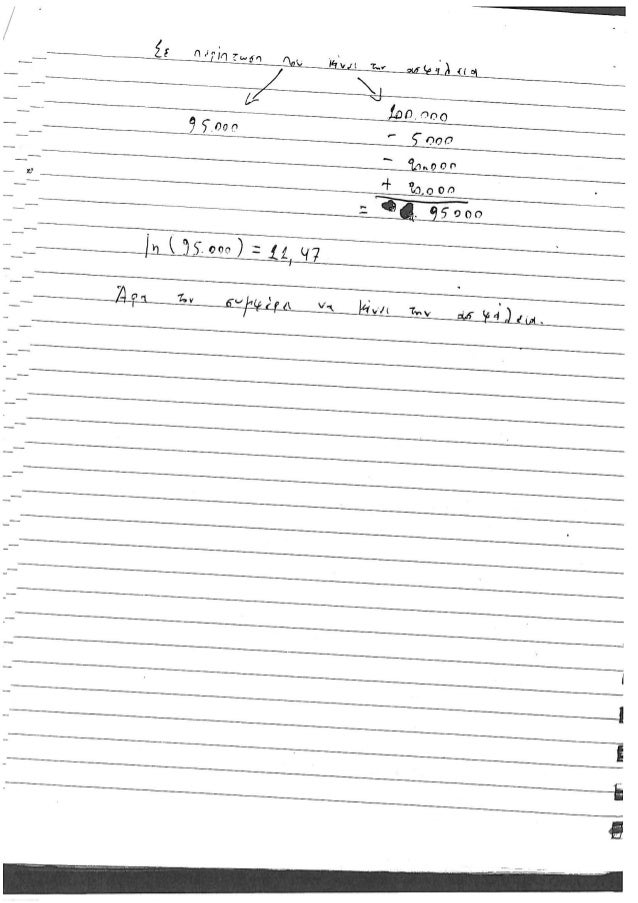 Σε περίπτωση που κάνει την ασφάλεια
95.000
100.000
- 5000
- 20.000
+ 20.000
= 95000
ln (95.000) = 11,47
Άρα τον συμφέρει να κάνει την ασφάλεια.